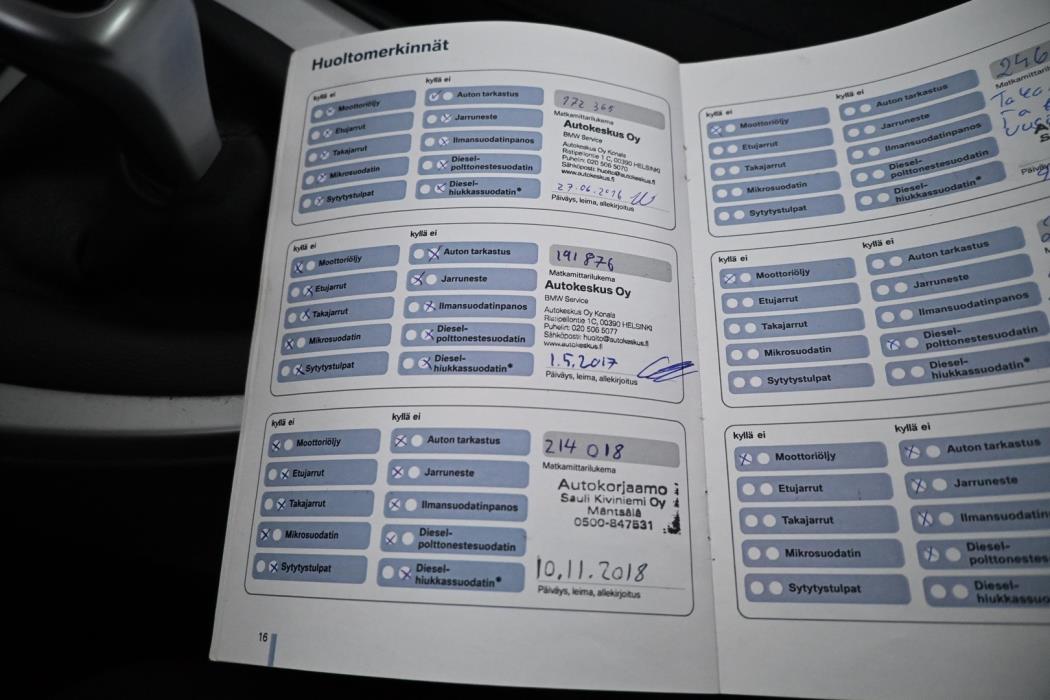 Huoltomerkinnät
kyllä ei
kyllä ei
Moottoriöljy
Etujarrut
Takajarrut
Mikrosuodatin
Sytytystulpat
Auton tarkastus
Jarruneste
Ilmansuodatinpanos
Diesel-
polttonestesuodatin
Diesel-
hiukkassuodatin*
172 365
Matkamittarilukema
Autokeskus Oy
BMW Service
Autokeskus Oy Konala
Ristipellontie 1 C, 00390 HELSINKI
Puhelin: 020 506 5070
Sähköposti: huolto@autokeskus.fi
www.autokeskus.fi
27.06.2016
Päiväys, leima, allekirjoitus
kyllä ei
kyllä ei
Moottoriöljy
Etujarrut
Takajarrut
Mikrosuodatin
Sytytystulpat
Auton tarkastus
Jarruneste
Ilmansuodatinpanos
Diesel-
polttonestesuodatin
Diesel-
hiukkassuodatin*
191 876
Matkamittarilukema
Autokeskus Oy
BMW Service
Autokeskus Oy Konala
Ristipellontie 1C, 00390 HELSINKI
Puhelin: 020 506 5077
Sähköposti: huolto@autokeskus.fi
www.autokeskus.fi
1.5.2017
Päiväys, leima, allekirjoitus
kyllä ei
kyllä ei
Moottoriöljy
Etujarrut
Takajarrut
Mikrosuodatin
Sytytystulpat
Auton tarkastus
Jarruneste
Ilmansuodatinpanos
Diesel-
polttonestesuodatin
Diesel-
hiukkassuodatin*
214 018
Matkamittarilukema
Autokorjaamo
Sauli Kiviniemi Oy
Mäntsälä
0500-847531
10.11.2018
Päiväys, leima, allekirjoitus
16
kyllä ei
kyllä ei
Moottoriöljy
Etujarrut
Takajarrut
Mikrosuodatin
Sytytystulpat
Auton tarkastus
Jarruneste
Ilmansuodatinpanos
Diesel-
polttonestesuodatin
Diesel-
hiukkassuodatin*
246
Matkamittarilu
Taka
kyllä ei
kyllä ei
Moottoriöljy
Etujarrut
Takajarrut
Mikrosuodatin
Sytytystulpat
Auton tarkastus
Jarruneste
Ilmansuodatinpanos
Diesel-
polttonestesuodatin
Diesel-
hiukkassuodatin*
kyllä ei
kyllä ei
Moottoriöljy
Etujarrut
Takajarrut
Mikrosuodatin
Sytytystulpat
Auton tarkastus
Jarruneste
Ilmansuodatin
Diesel-
polttonestes
Diesel-
hiukkassuo